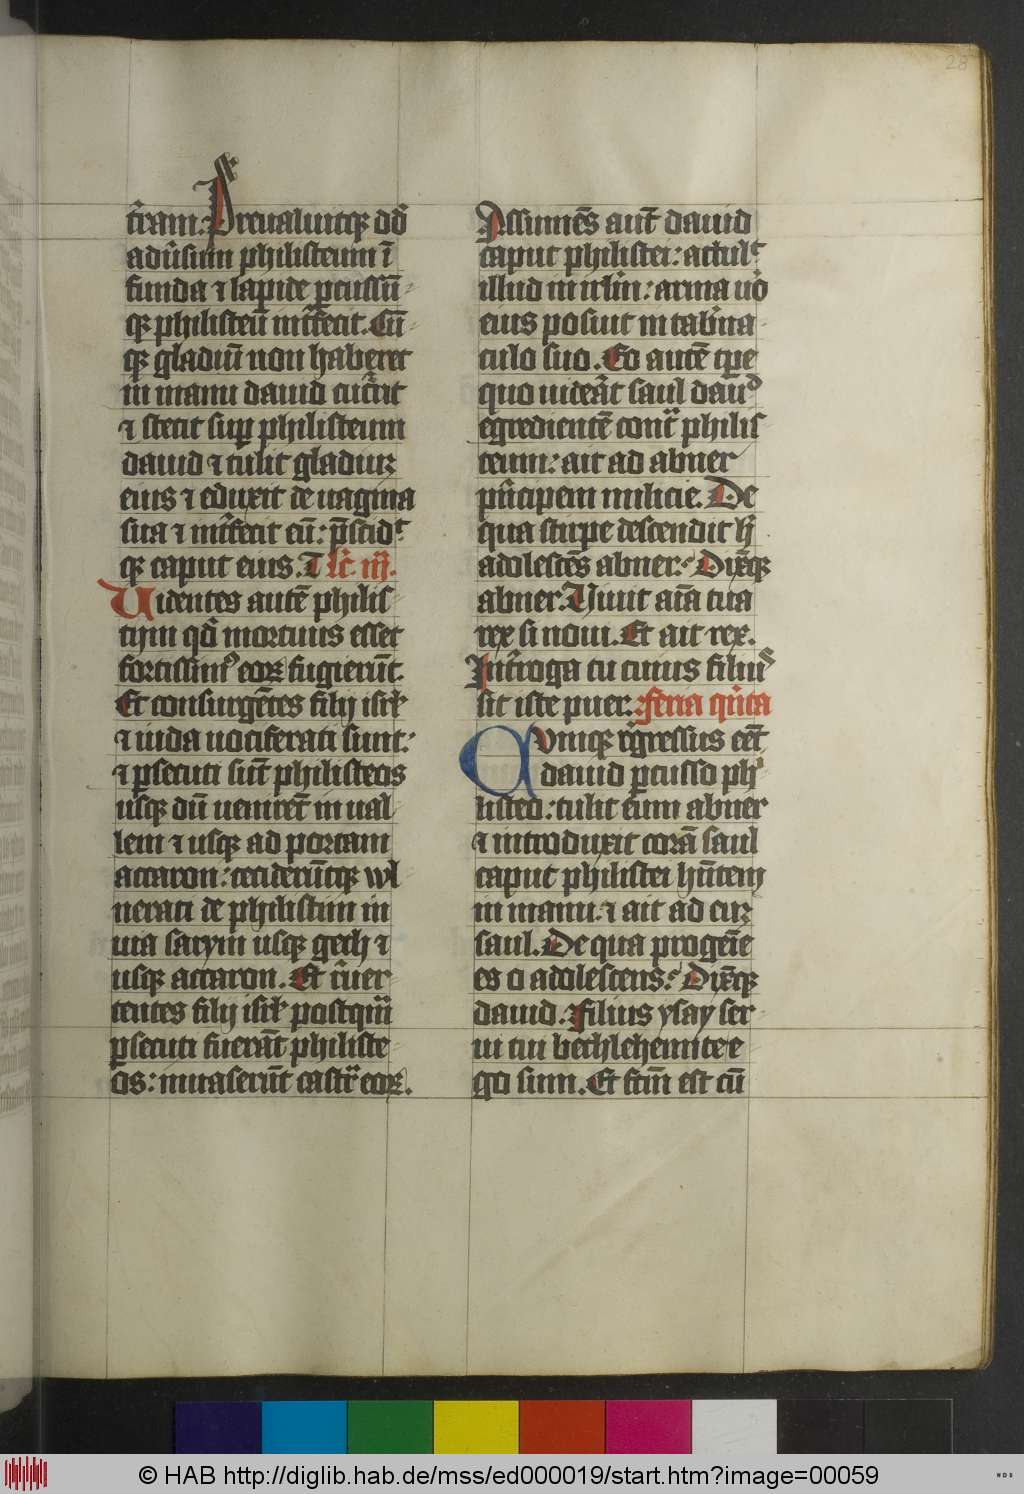 28
t̄ram. Preualuitq; dd̄
adūsum philisteum ī
funda ⁊ lapide ꝑcussū
q; philisteū int̄fecit. Cū
q; gladiū non haberet
in manu dauid cucr̄it
⁊ stetit suꝑ philisteum
dauid ⁊ tulit gladiuꝫ
eius ⁊ eduxit de uagina
sua ⁊ int̄fecit eū: p̄scidᵗ
q; caput eius. T lc̄. iij.
Uidentes autē philis
tijm qd̄ mortuus esset
fortissimꝰ eoꝝ fugierūt.
Et consurgētes filij isrł
⁊ iuda uociferati sunt:
⁊ ꝑsecuti sūt philisteos
usq; dū uenirēt in ual
lem ⁊ usq; ad portam
accaron: ceciderūtq; wl
nerati de philistim in
uia sarym usq; geth ⁊
usq; accaron. Et r̄uer
tentes filij isrł postqm̄
ꝑsecuti fuerāt philiste
os: inuaserūt castr̄ eoꝝ.
Assumēs aut̄ dauid
caput philistei: attulᵗ
illud in irl̄m: arma uo̊
eius posuit in tab̄na
culo suo. Eo autē tꝑe
quo uiderāt saul dauīᵈ
egredientē contᵃ philis
teum: ait ad abner
pn̄cipem milicie. De
qua stirpe descendit h̄
adolescēs abner: Dix̄q;
abner. Viuit aīa tua
rex si noui. Et ait rex.
Int̄roga tu cuius filiuˢ
sit iste puer. Feria qn̄ta
Cumq; rḡressus eēt
dauid ꝑcusso phⁱ
listeo: tulit eum abner
⁊ introduxit corā saul
caput philistei hn̄tem
in manu. ⁊ ait ad euꝫ
saul. De qua progeīe
es o adolescens: Dix̄q;
dauid. Filius ysay ser
ui tui bethlehemite e
go sum. Et fc̄m est cū
© HAB http://diglib.hab.de/mss/ed000019/start.htm?image=00059